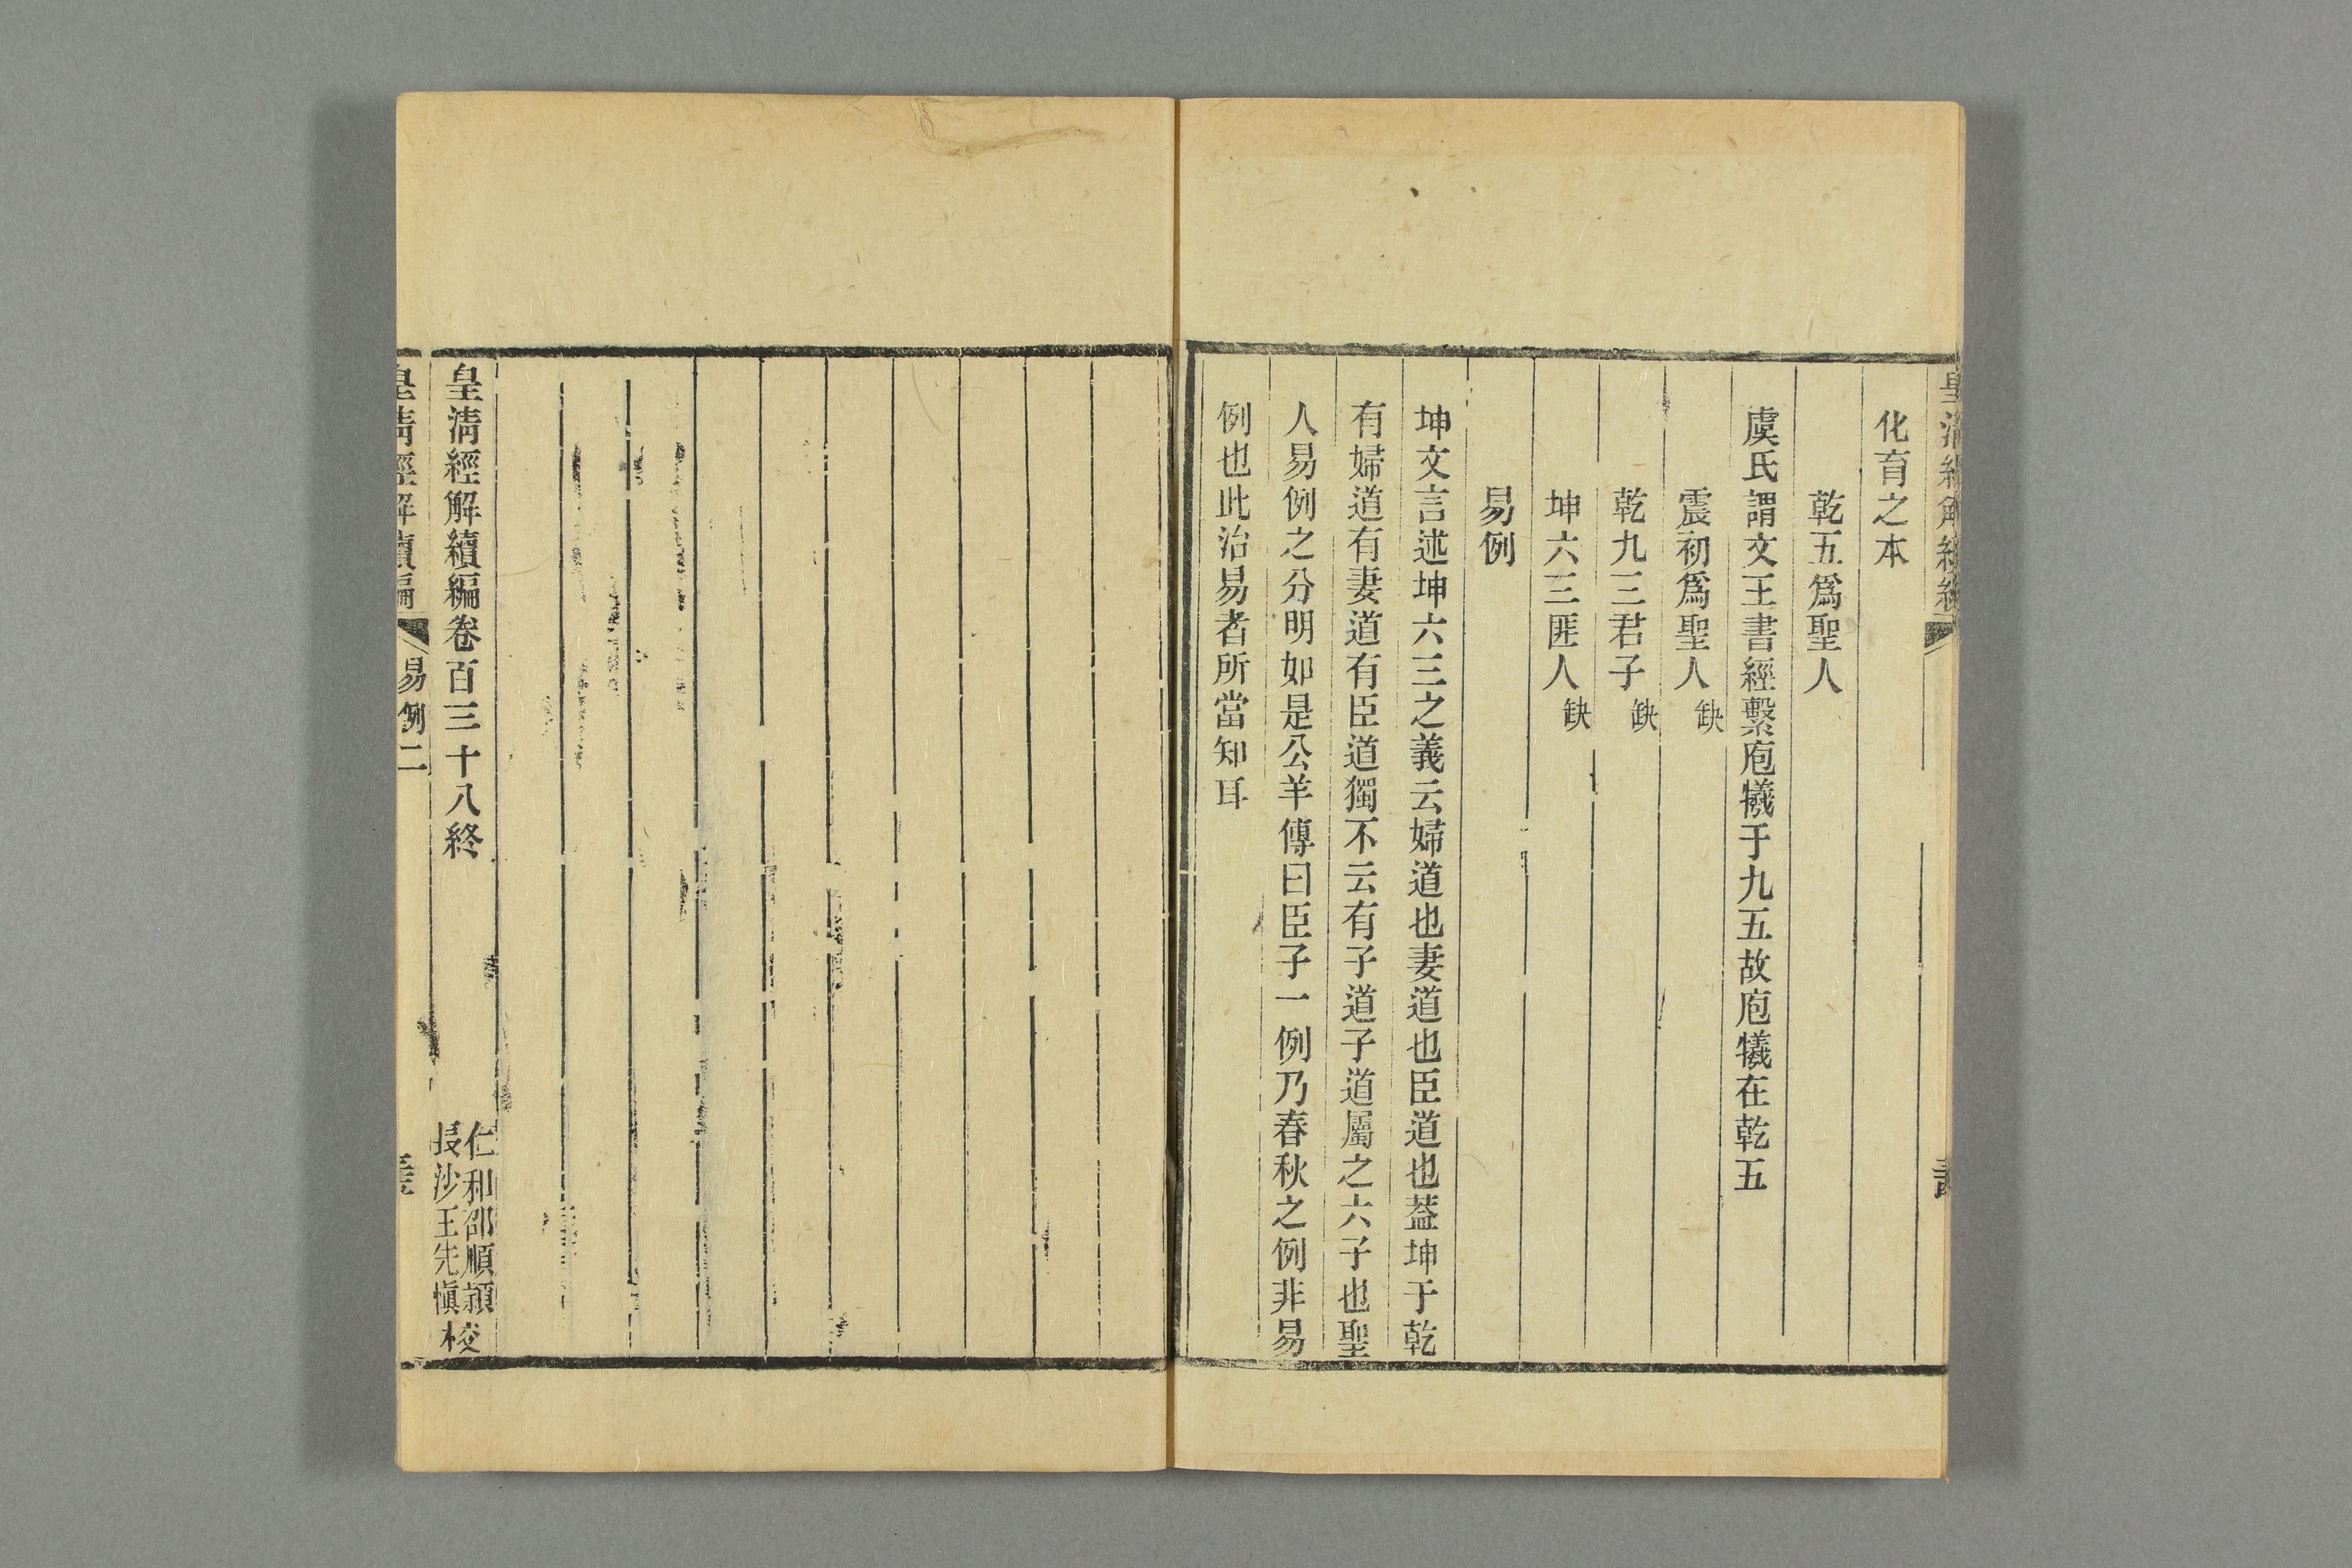 化育之本
乾五爲聖人
虞氏謂文王書經繫庖犧于九五故庖犧在乾五
震初爲聖人缺
乾九三君子缺
坤六三匪人缺
易例
坤文言述坤六三之義云婦道也妻道也臣道也葢坤于乾
有婦道有妻道有臣道獨不云有子道子道屬之六子也聖
人易例之分明如是公羊傳曰臣子一例乃春秋之例非易
例也此治易者所當知耳
皇清經解續編卷百三十八終
仁和邵順頴
長沙王先愼校
皇清經解續編
易例二